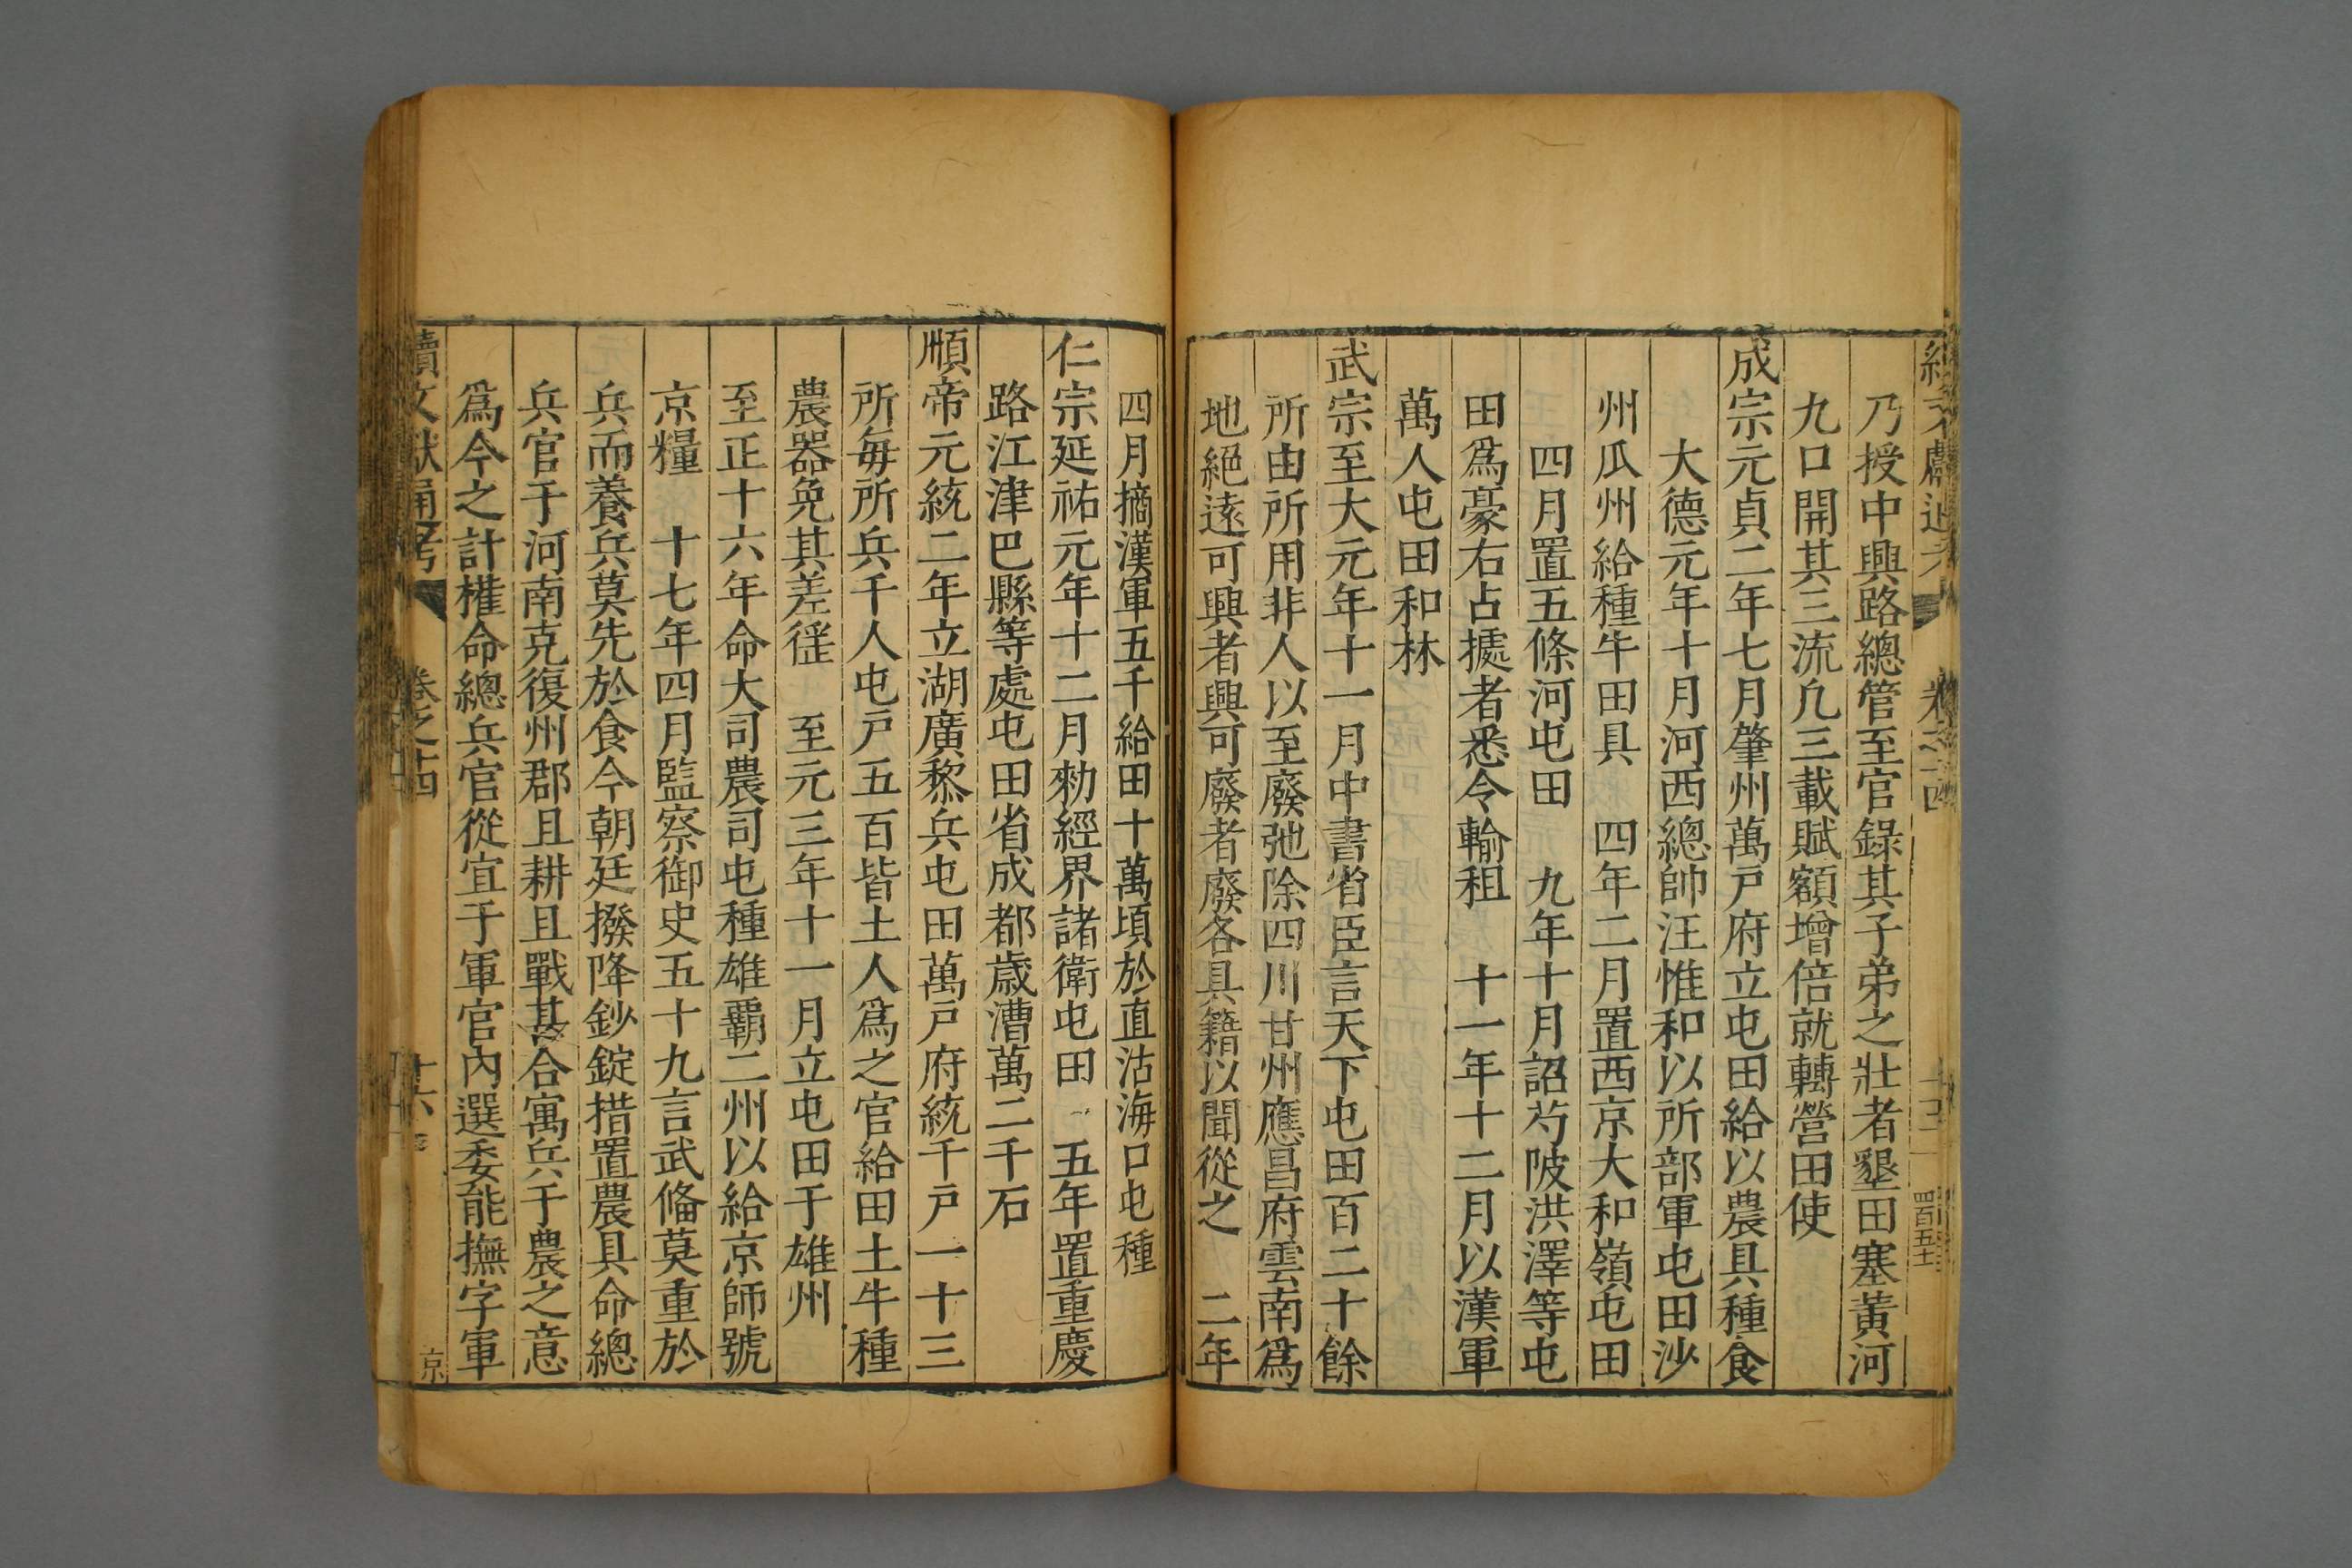 乃授中興路總管至官錄其子弟之壯者墾田塞黃河
九口開其三流凡三載賦額增倍就轉營田使
成宗元貞二年七月肇州萬戸府立屯田給以農具種食
大德元年十月河西總帥汪惟和以所部軍屯田沙
州瓜州給種牛田具　四年二月置西京大和嶺屯田
四月置五條河屯田　九年十月詔芍陂洪澤等屯
田爲豪右占㩀者悉令輸租　十一年十二月以漢軍
萬人屯田和林
武宗至大元年十一月中書省臣言天下屯田百二十餘
所由所用非人以至廢弛除四川甘州應昌府雲南爲
地絕遠可興者興可廢者廢各具籍以聞從之　二年
四月摘漢軍五千給田十萬頃於直沽海口屯種
仁宗延祐元年十二月勑經界諸衛屯田　五年置重慶
路江津巴縣等處屯田省成都歲漕萬二千石
順帝元統二年立湖廣黎兵屯田萬戸府統千戸一十三
所每所兵千人屯戸五百皆土人爲之官給田土牛種
農器免其差徭　至元三年十一月立屯田于雄州
至正十六年命大司農司屯種雄覇二州以給京師號
京糧　十七年四月監察御史五十九言武備莫重於
兵而養兵莫先於食今朝廷撥降鈔錠措置農具命總
兵官于河南克復州郡且耕且戰甚合寓兵于農之意
爲今之計權命總兵官從宜于軍官內選委能撫字軍
續文獻通考　卷之十四　十六　京